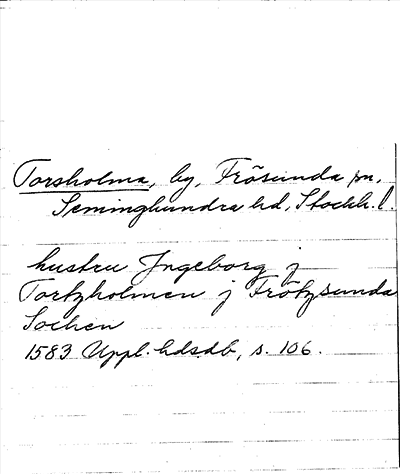 Torsholma, by, Frösunda sn,
Seminghundra hd, Stockh. l.
hustru Jngeborg j
Tortzholmen j Frötzsunda
Sochen
1583 Uppl. hdsdb, s. 106.